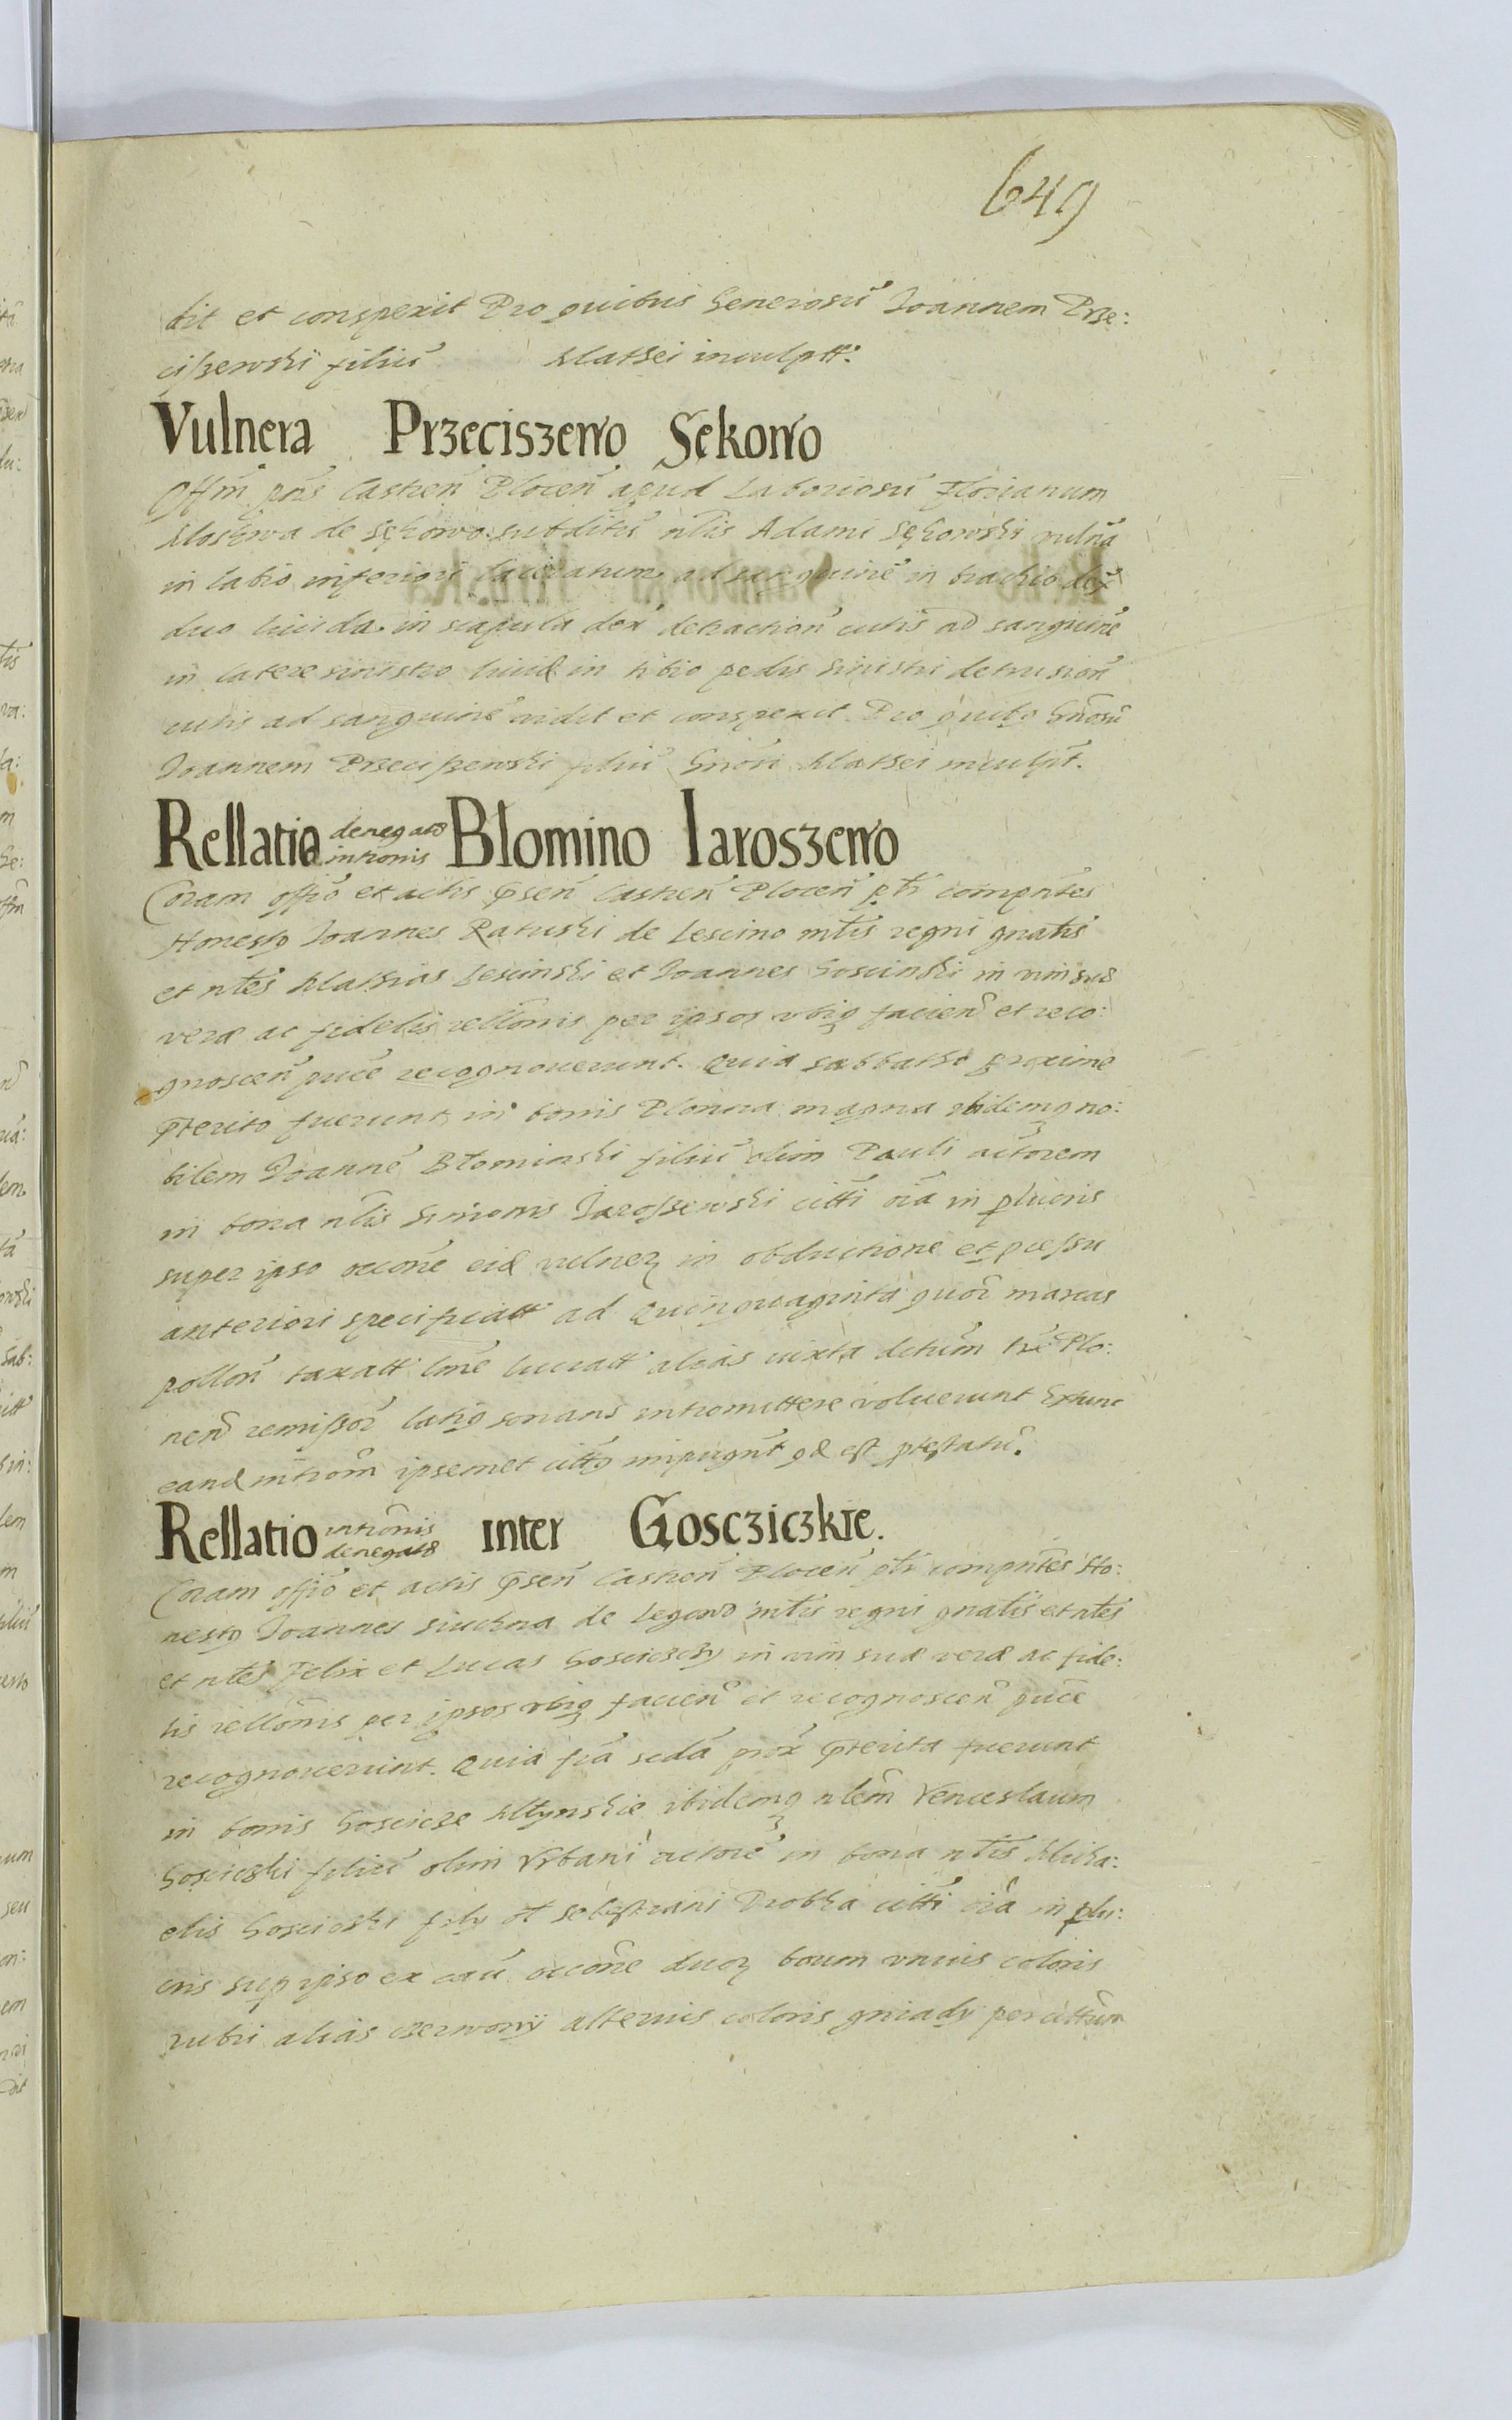 649
dit et conspexit Pro quibus Generosũ Joannem Prze:
cisʒewski filiũ Mathei inculptt.
Vulnera Przeciszewo Sekowo
Offm̃ pñs Castren̄ Plocen̄ apud Laboriosũ Florianum
de Sękowo subditũ nłis Adami Sękowski vulña
in labio inferiori laceratum ad sanguinẽ in brachio dex̃
duo liuida in scapula dex̃ detraction̄ cutis ad sanguinẽ
in latere sinistro liuid in tibio pedis sinistri detrusion̄
cutis ad sanguinẽ vidit et conspexit. Pro quibꝯ Gñosũ
Joannem Przeciszewski filiũ Gñosi Mathei inculpt̃.
Rellatio denegatæ intronis Blomino Iaroszewo
Coram offiõ et actis p̃sen̄ Castren̄ Plocen̄ ptr̃ compñtes
Honestꝯ Joannes Ratuski de Lescino mtr̃is regni gñalis
et nłes Mathias Lescinski et Joannes Goscinski in vim suæ
veræ ac fidelis rellõnis per ipsos vbiqꝫ facien̄ et reco:
gnoscen̄ pucẽ recognouerunt. Quia sabbatho proxime
p̃terito fuerunt in bonis Plonna magna ibidemqꝫ no:
bilem Joannẽ Błominski filiũ olim Pauli actorem
in bona nłis Simonis Jaroszewski citti oĩa in pluris
super ipso occõne eid vulneꝝ in obductione et pcessu
anteriori specificatt ad Quinquaginta quor̃ marcas
pollon̄ taxatt lucratt alias iuxta dctum tr̃æ Plo:
nen̄ remissor̃ latiꝯ sonans intromittere voluerunt Extunc
eand intrõm ipsemet cittꝯ impugn̄t qd est ptestatũ.
Rellatio intrõnis denegatæ inter Gosczicʒkie.
Coram offiõ et actis p̃sen̄ Castren̄ Plocen̄ ptr̃ compñtes Ho:
nestꝯ Joannes Siuchna de Legowo mtr̃is regni gñalis et nłes
et nłes Felix et Lucas Goscicʒky in vim suæ veræ ac fide:
lis rellõnis per ipsos vbiqꝫ facien̄ et recognoscen̄ pucẽ
recognouerunt. Quia fr̃ia scda prox̃ p̃terita fuerunt
in bonis Goscicze Młynskie ibidemqꝫ nłem Venceslaum
Goscicʒki filiũ olim Vrbani actorẽ in bona nłis Micha:
elis Goscicʒki fily ol̃ Sebastiani Drobka citti oĩa in plu:
ris sup ipso ex cau occõne duoꝝ boum vnius coloris
rubri alias czerwony alterius coloris gniady per cittum